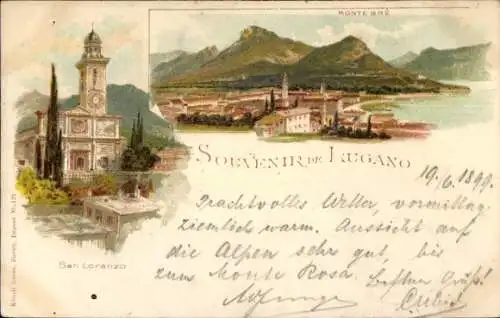 MONTE BRÈ
SOUVENIR DE LUGANO
19./6. 1899.
Prachtvolles Wetter, vormittag
ziemlich warm. Aussicht auf
die Alpen sehr gut, bis
zum Monte Rosa. Besten Gruß!
San Lorenzo